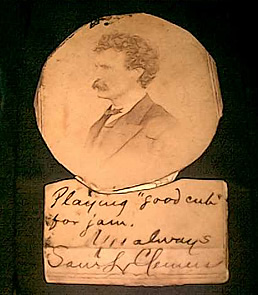 Playing "good cub"
for jam.
Yrs always
Saml L Clemens